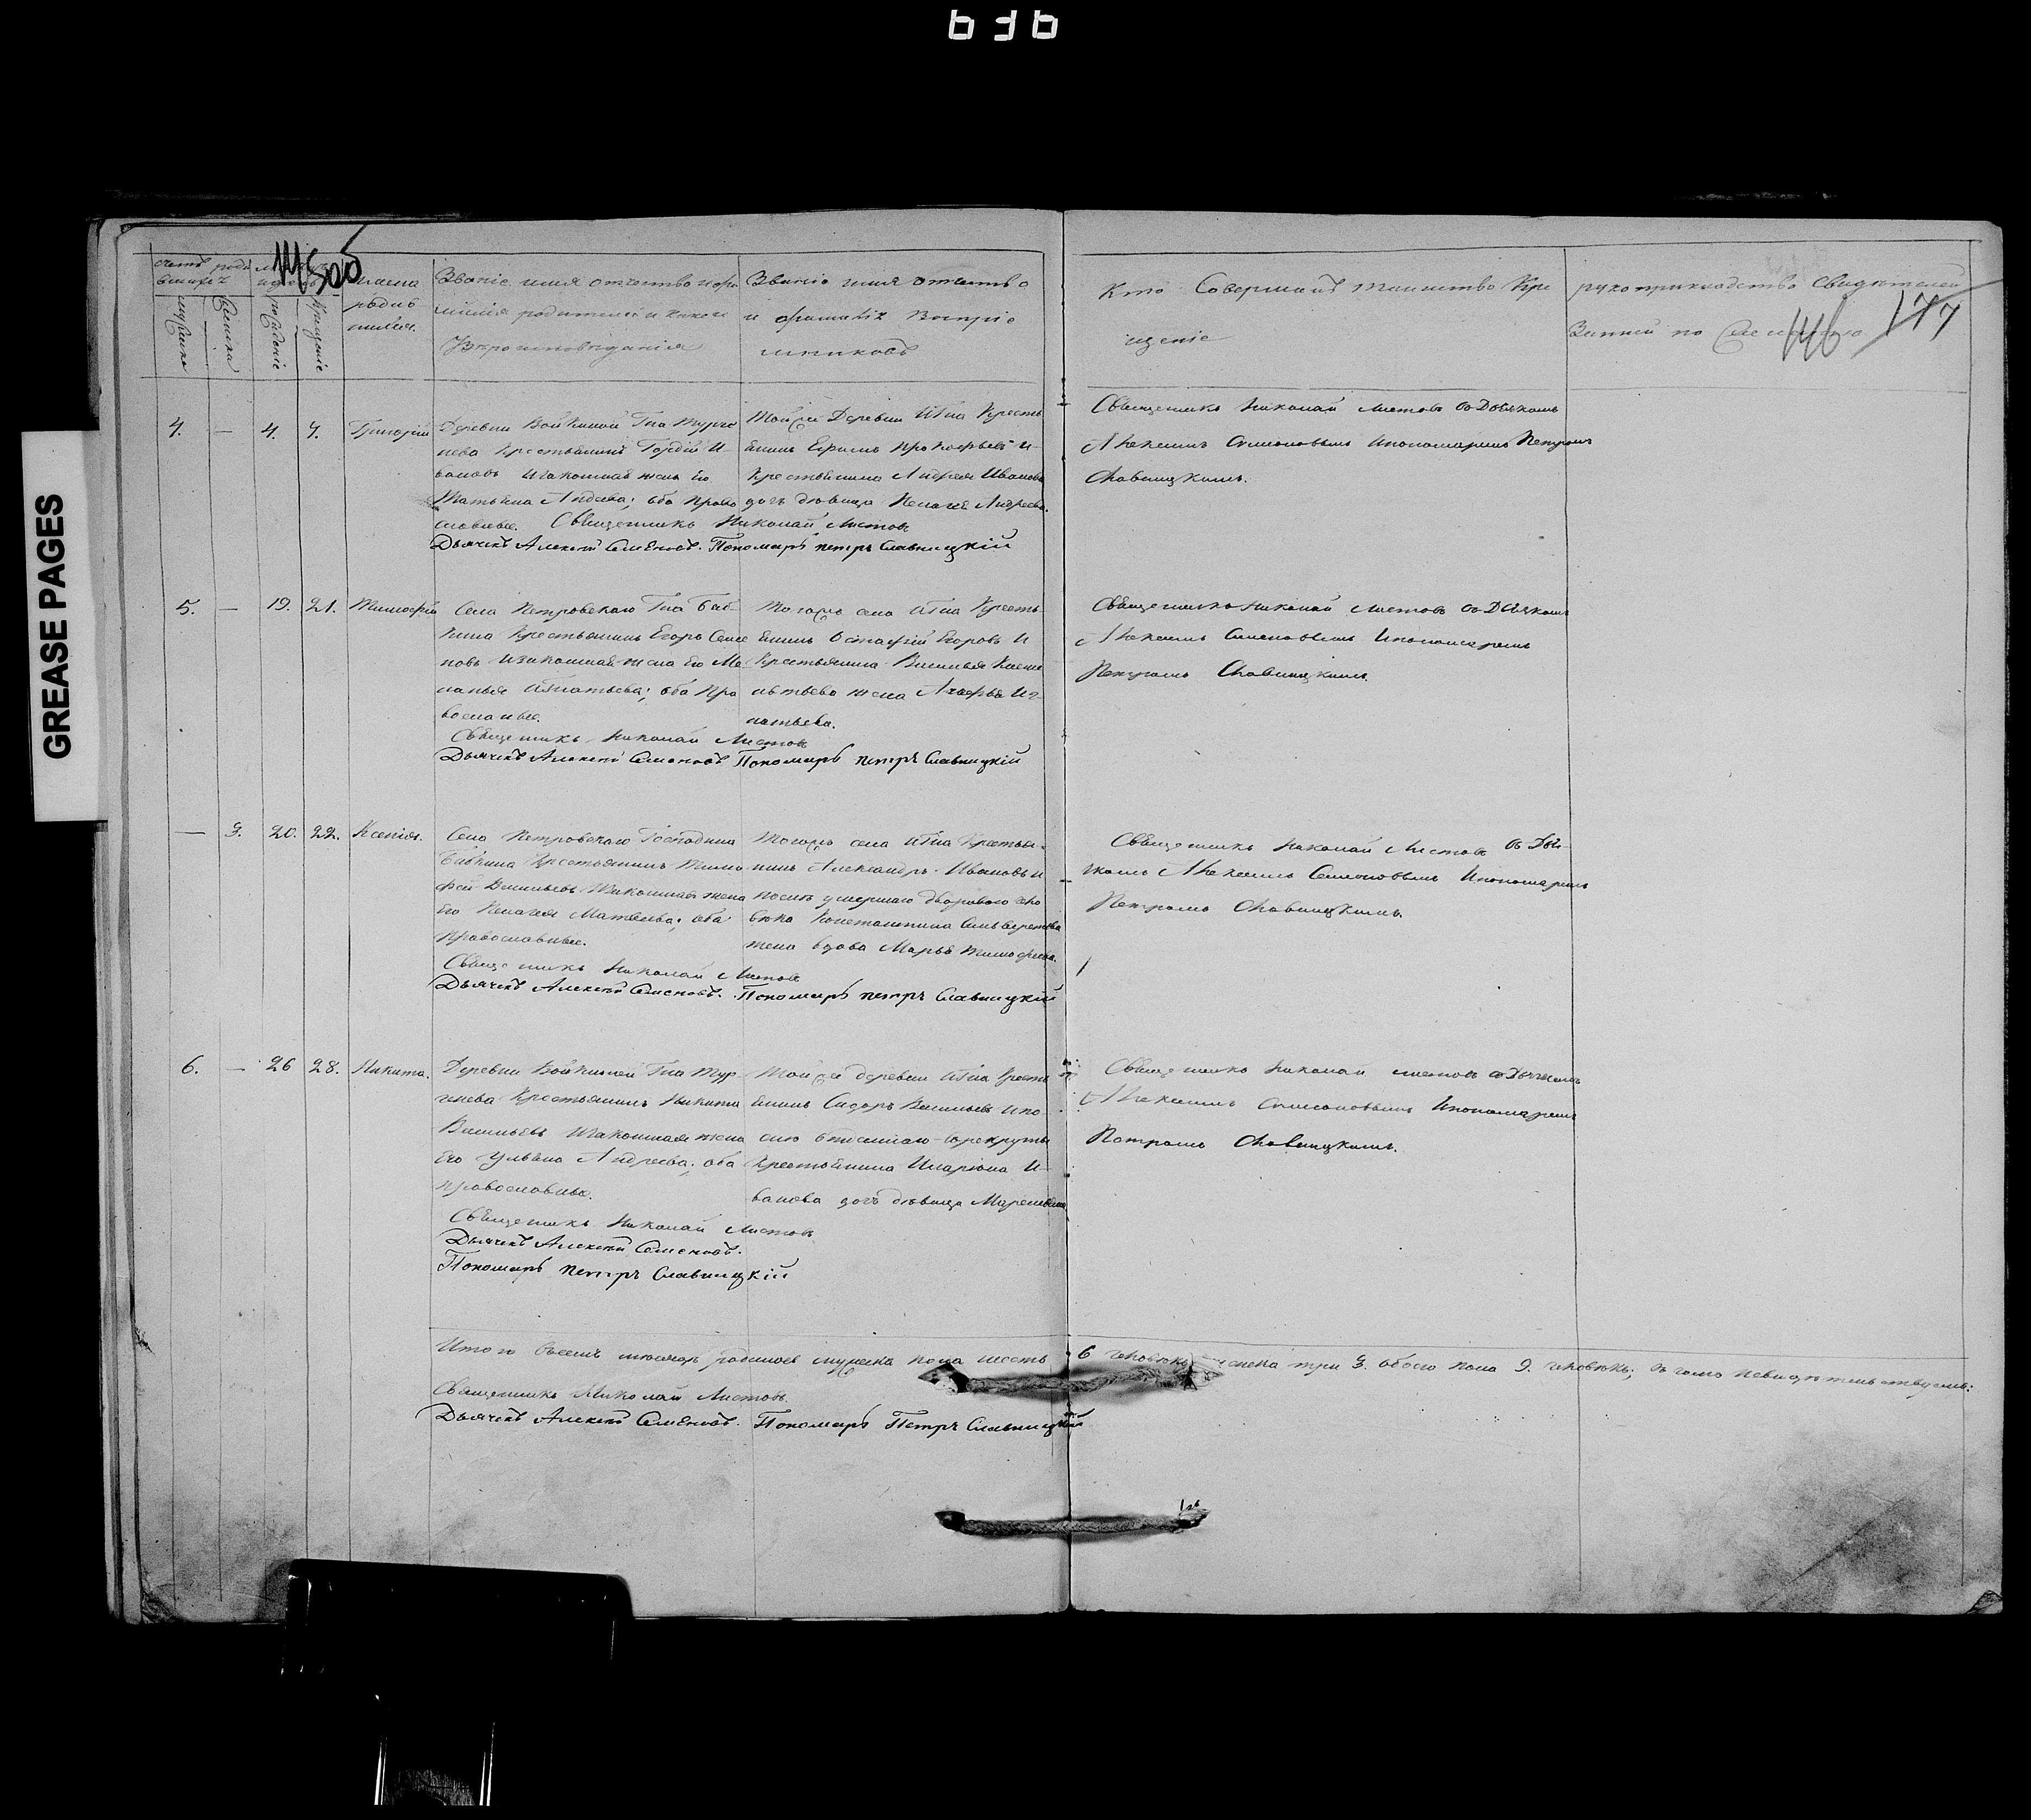 636
GREASE PAGES
146 177
Званіе имя отчество и фа
милія родителей и какого
Вѣроисповѣданія
Званіе имя отчество
и фамилія Воспріе
мниковъ
Кто Совершалъ таинство Кре
щеніе
рукоприкладство Свидѣтелей
Записи по
4. — 4. 7. Григорій
Деревни Войкиной Гна Турге
нева Крестьянинъ Гордій И
вановъ Изаконная жена Его
Татьяна Андева; оба право
славные. Священникъ Николай Листовъ
Дьячекъ Алексѣй Семеновъ. Пономарь петръ Славницкій
Тойже Деревни Гна Кресть
янинъ Ефимъ Прокофьевъ и
Крестьянина Андрея Иванова
дочь дѣвица Пелагея Андреева.
Священникъ Николай Листовъ съ Дьячкомъ
Алексѣемъ Семеновымъ Ипономаремъ Петромъ
Славницкимъ.
5. — 19. 21. Тимофей
Села Петровскаго Гна Баб-
кина Крестьянинъ Егоръ Семе
новъ Изаконная жена Его Ме
ланья Игнатьева; оба пра
вославные.
Священникъ Николай Листовъ
Дьячекъ Алексѣй Семеновъ Пономарь петръ Славницкій
Тогожъ села Гна Кресть
янинъ Остафей Егоровъ И
Крестьянина Василья
жена И
натьева.
Священникъ Николай Листовъ съ Дьячкомъ
Алексѣемъ Семеновымъ Ипономаремъ
Петромъ Славницкимъ.
— 3. 20. 22. Ксенія.
Села Петровскаго Господина
Бабкина Крестьянинъ Тимо
фей Васильевъ Изаконная жена
Его Пелагея Матвеева; оба
православные.
Священникъ Николай Листовъ
Дьячекъ Алексѣй Семеновъ. Пономарь петръ Славницкій
Тогожъ села Гна Крестья-
нинъ Александръ Ивановъ и
умершаго двороваго чело
века Константина
жена вдова Марья Тимофеева.
Священникъ Николай Листовъ съ Дья-
чкомъ Алексѣемъ Семеновымъ Ипономаремъ
Петромъ Славницкимъ.
6. — 26 28. Никита.
Деревни Войкиной Гна Тур-
генева Крестьянинъ Никита
Васильевъ Изаконная жена
Его Ульяна Андреева; оба
православные.
Священникъ Николай Листовъ
Дьячекъ Алексѣй Семеновъ.
Пономарь петръ Славницкій
Тойже деревни Гна Кресть
янинъ Сидоръ Васильевъ
Крестьянина Иларіона И-
ванова дочь дѣвица
Священникъ Николай Листовъ съ Дьячкомъ
Алексѣемъ Семеновымъ Ипономаремъ
Петромъ Славницкимъ.
Итого въсемъ месяцѣ родилось мужска пола шесть 6 человѣкъ женска три 3. обоего пола 9. человѣкъ;
Священникъ Николай Листовъ.
Дьячекъ Алексѣй Семеновъ. Пономарь Петръ Славницкій